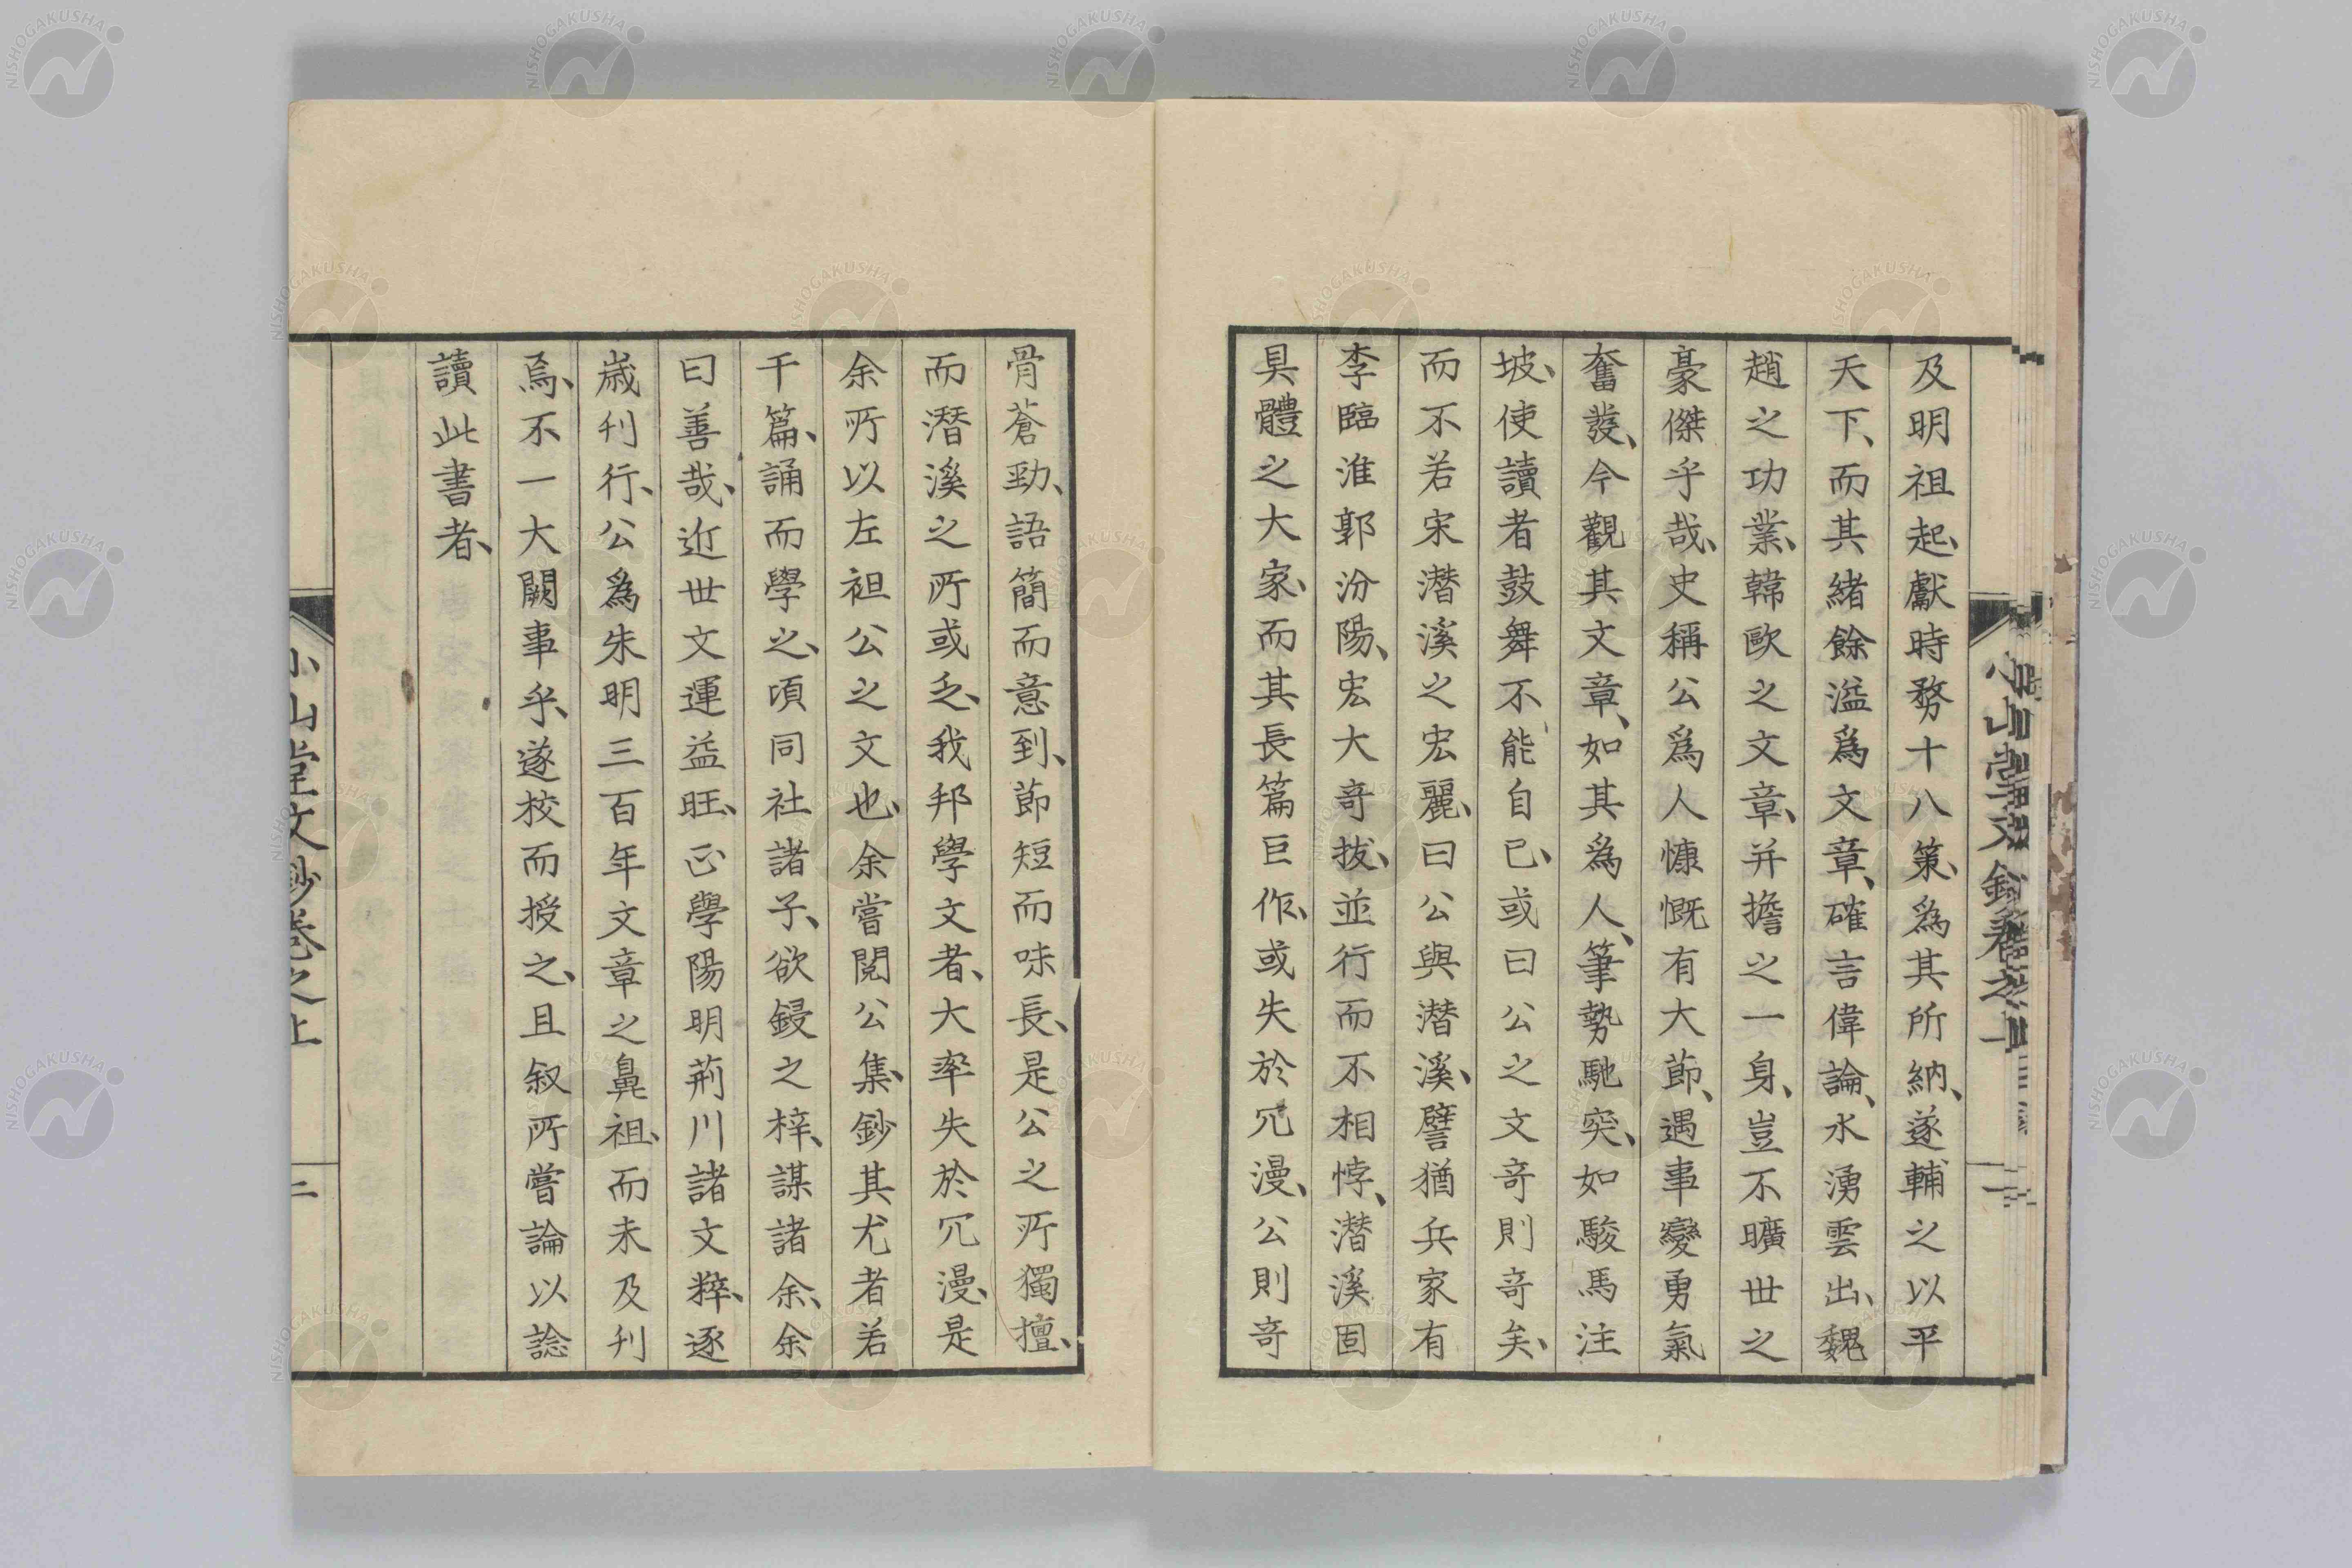 及明祖起、獻時務十八策、為其所納、遂輔之以平
天下、而其緒餘溢爲文章、確言偉論、水湧雲出、魏
趙之功業、韓歐之文章、并擔之一身、豈不曠世之
豪傑乎哉、史稱公爲人慷慨有大節、遇事變勇氣
奮發、今觀其文章、如其為人、筆勢馳突、如駿馬注
坡、使讀者鼓舞不能自已、或曰公之文奇則奇矣、
而不若宋潛溪之宏麗、曰公與潛溪、譬猶兵家有
李臨淮郭汾陽、宏大奇拔、並行而不相悖、潛溪固
具體之大家、而其長篇巨作、或失於冗漫、公則奇
骨蒼勁、語簡而意到、節短而味長、是公之所獨擅、
而潛溪之所或乏、我邦學文者、大率失於冗漫、是
余所以左袒公之文也、余嘗閱公集、鈔其尤者若
干篇、誦而學之、頃同社諸子、欲鋟之梓、謀諸余、余
曰善哉、近世文運益旺、正學陽明荊川諸文粹、逐
歲刊行、公為朱明三百年文章之鼻祖、而未及刊
焉、不一大闕事乎、遂校而授之、且叙所嘗論以諗
讀此書者、
小山堂文鈔卷之上
二